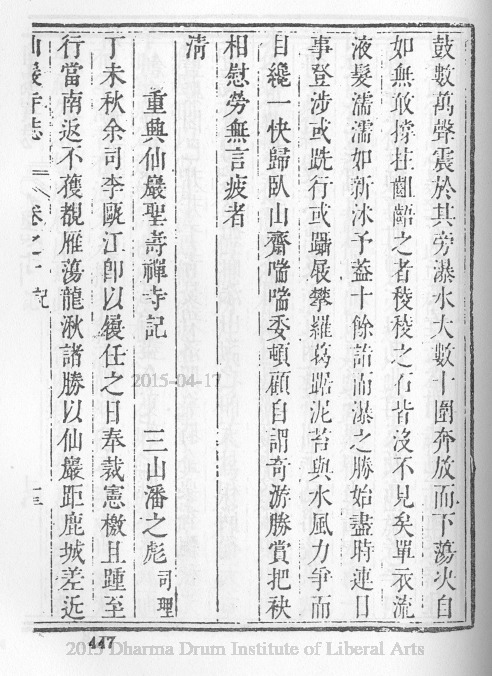 鼓數萬聲震於其旁瀑水大數十圍奔放而下蕩決自
如無敢撐拄齟齬之者稜稜之石皆沒不見矣單衣流
液髮濡濡如新沐予蓋十餘詣而瀑之勝始盡時連日
事登涉或跣行或躡屐攀羅葛踏泥苔與水風力爭而
目纔一快歸臥山齋喘喘委頓顧自謂奇游勝賞把袂
相慰勞無言疲者
清
重興仙巖聖壽禪寺記 三山潘之彪 司理
丁未秋余司李甌江郎以視任之日奉裁憲檄且踵至
行當南返不獲覩雁蕩龍湫諸勝以仙巖距鹿城差近
仙巖寺志 卷之 記
447
2015-04-17
2015 Dharma Drum Institute of Liberal Arts